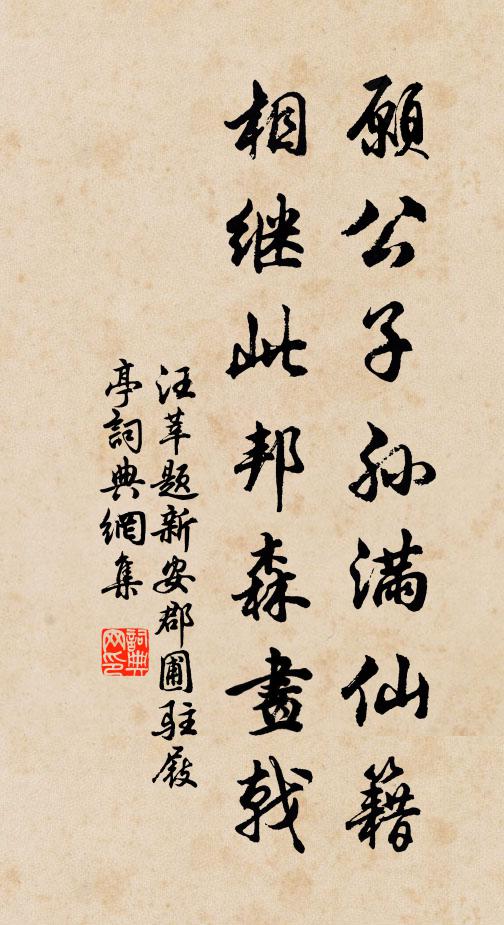 願公子孙满仙籍
相继此邦森畫戟
汪莘题新安郡圃驻屐
亭詞典網集
詞典
网印